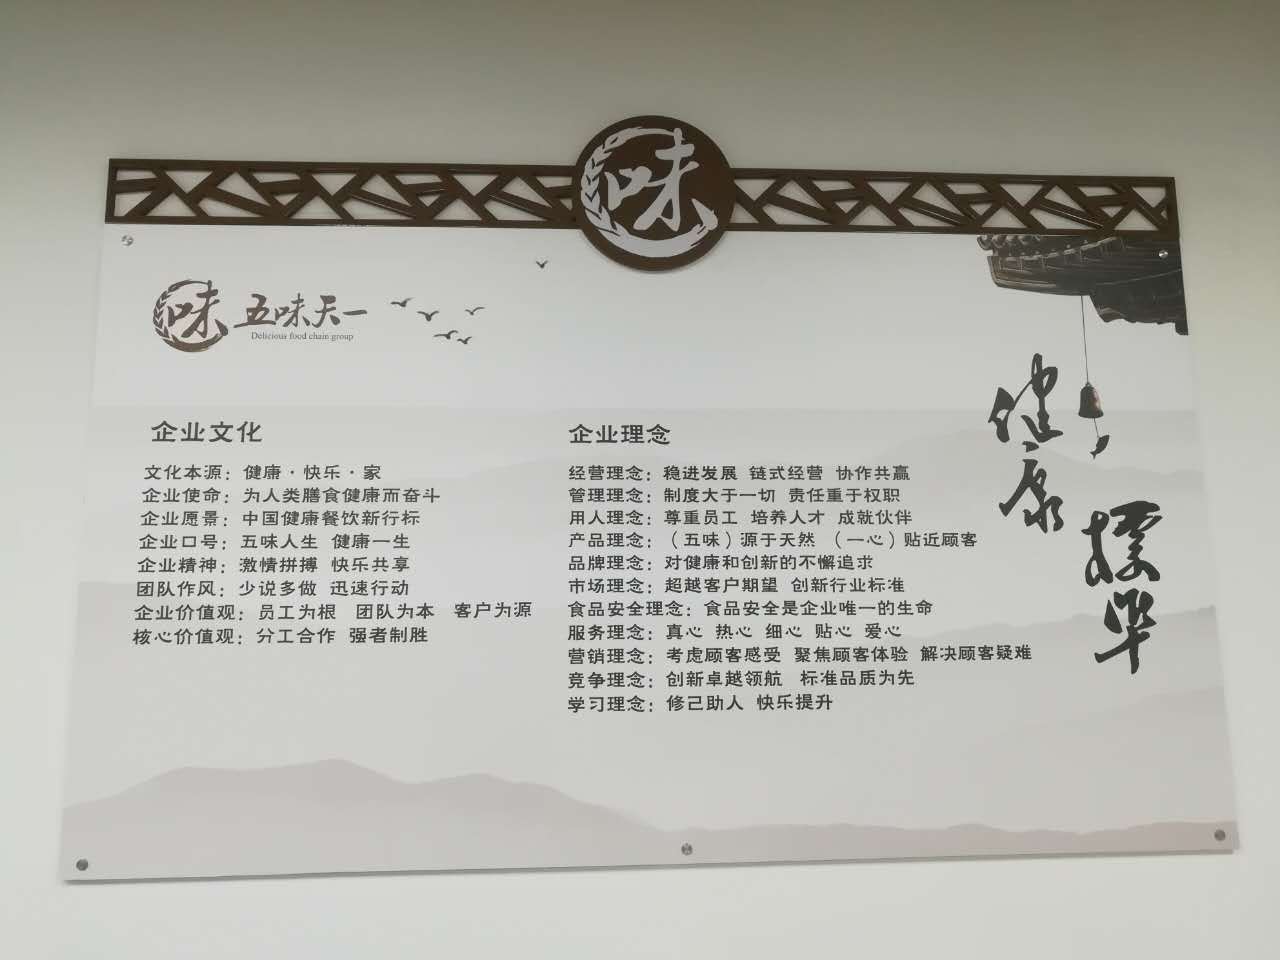 味
味 五味天一
Delicious food chain group
企业文化
文化本源：健康·快乐·家
企业使命：为人类膳食健康而奋斗
企业愿景：中国健康餐饮新行标
企业口号：五味人生 健康一生
企业精神：激情拼搏 快乐共享
团队作风：少说多做 迅速行动
企业价值观：员工为根 团队为本 客户为源
核心价值观：分工合作 强者制胜
企业理念
经营理念：稳进发展 链式经营 协作共赢
管理理念：制度大于一切 责任重于权职
用人理念：尊重员工 培养人才 成就伙伴
产品理念：（五味）源于天然 （一心）贴近顾客
品牌理念：对健康和创新的不懈追求
市场理念：超越客户期望 创新行业标准
食品安全理念：食品安全是企业唯一的生命
服务理念：真心 热心 细心 贴心 爱心
营销理念：考虑顾客感受 聚焦顾客体验 解决顾客疑难
竞争理念：创新卓越领航 标准品质为先
学习理念：修己助人 快乐提升
健康
标准